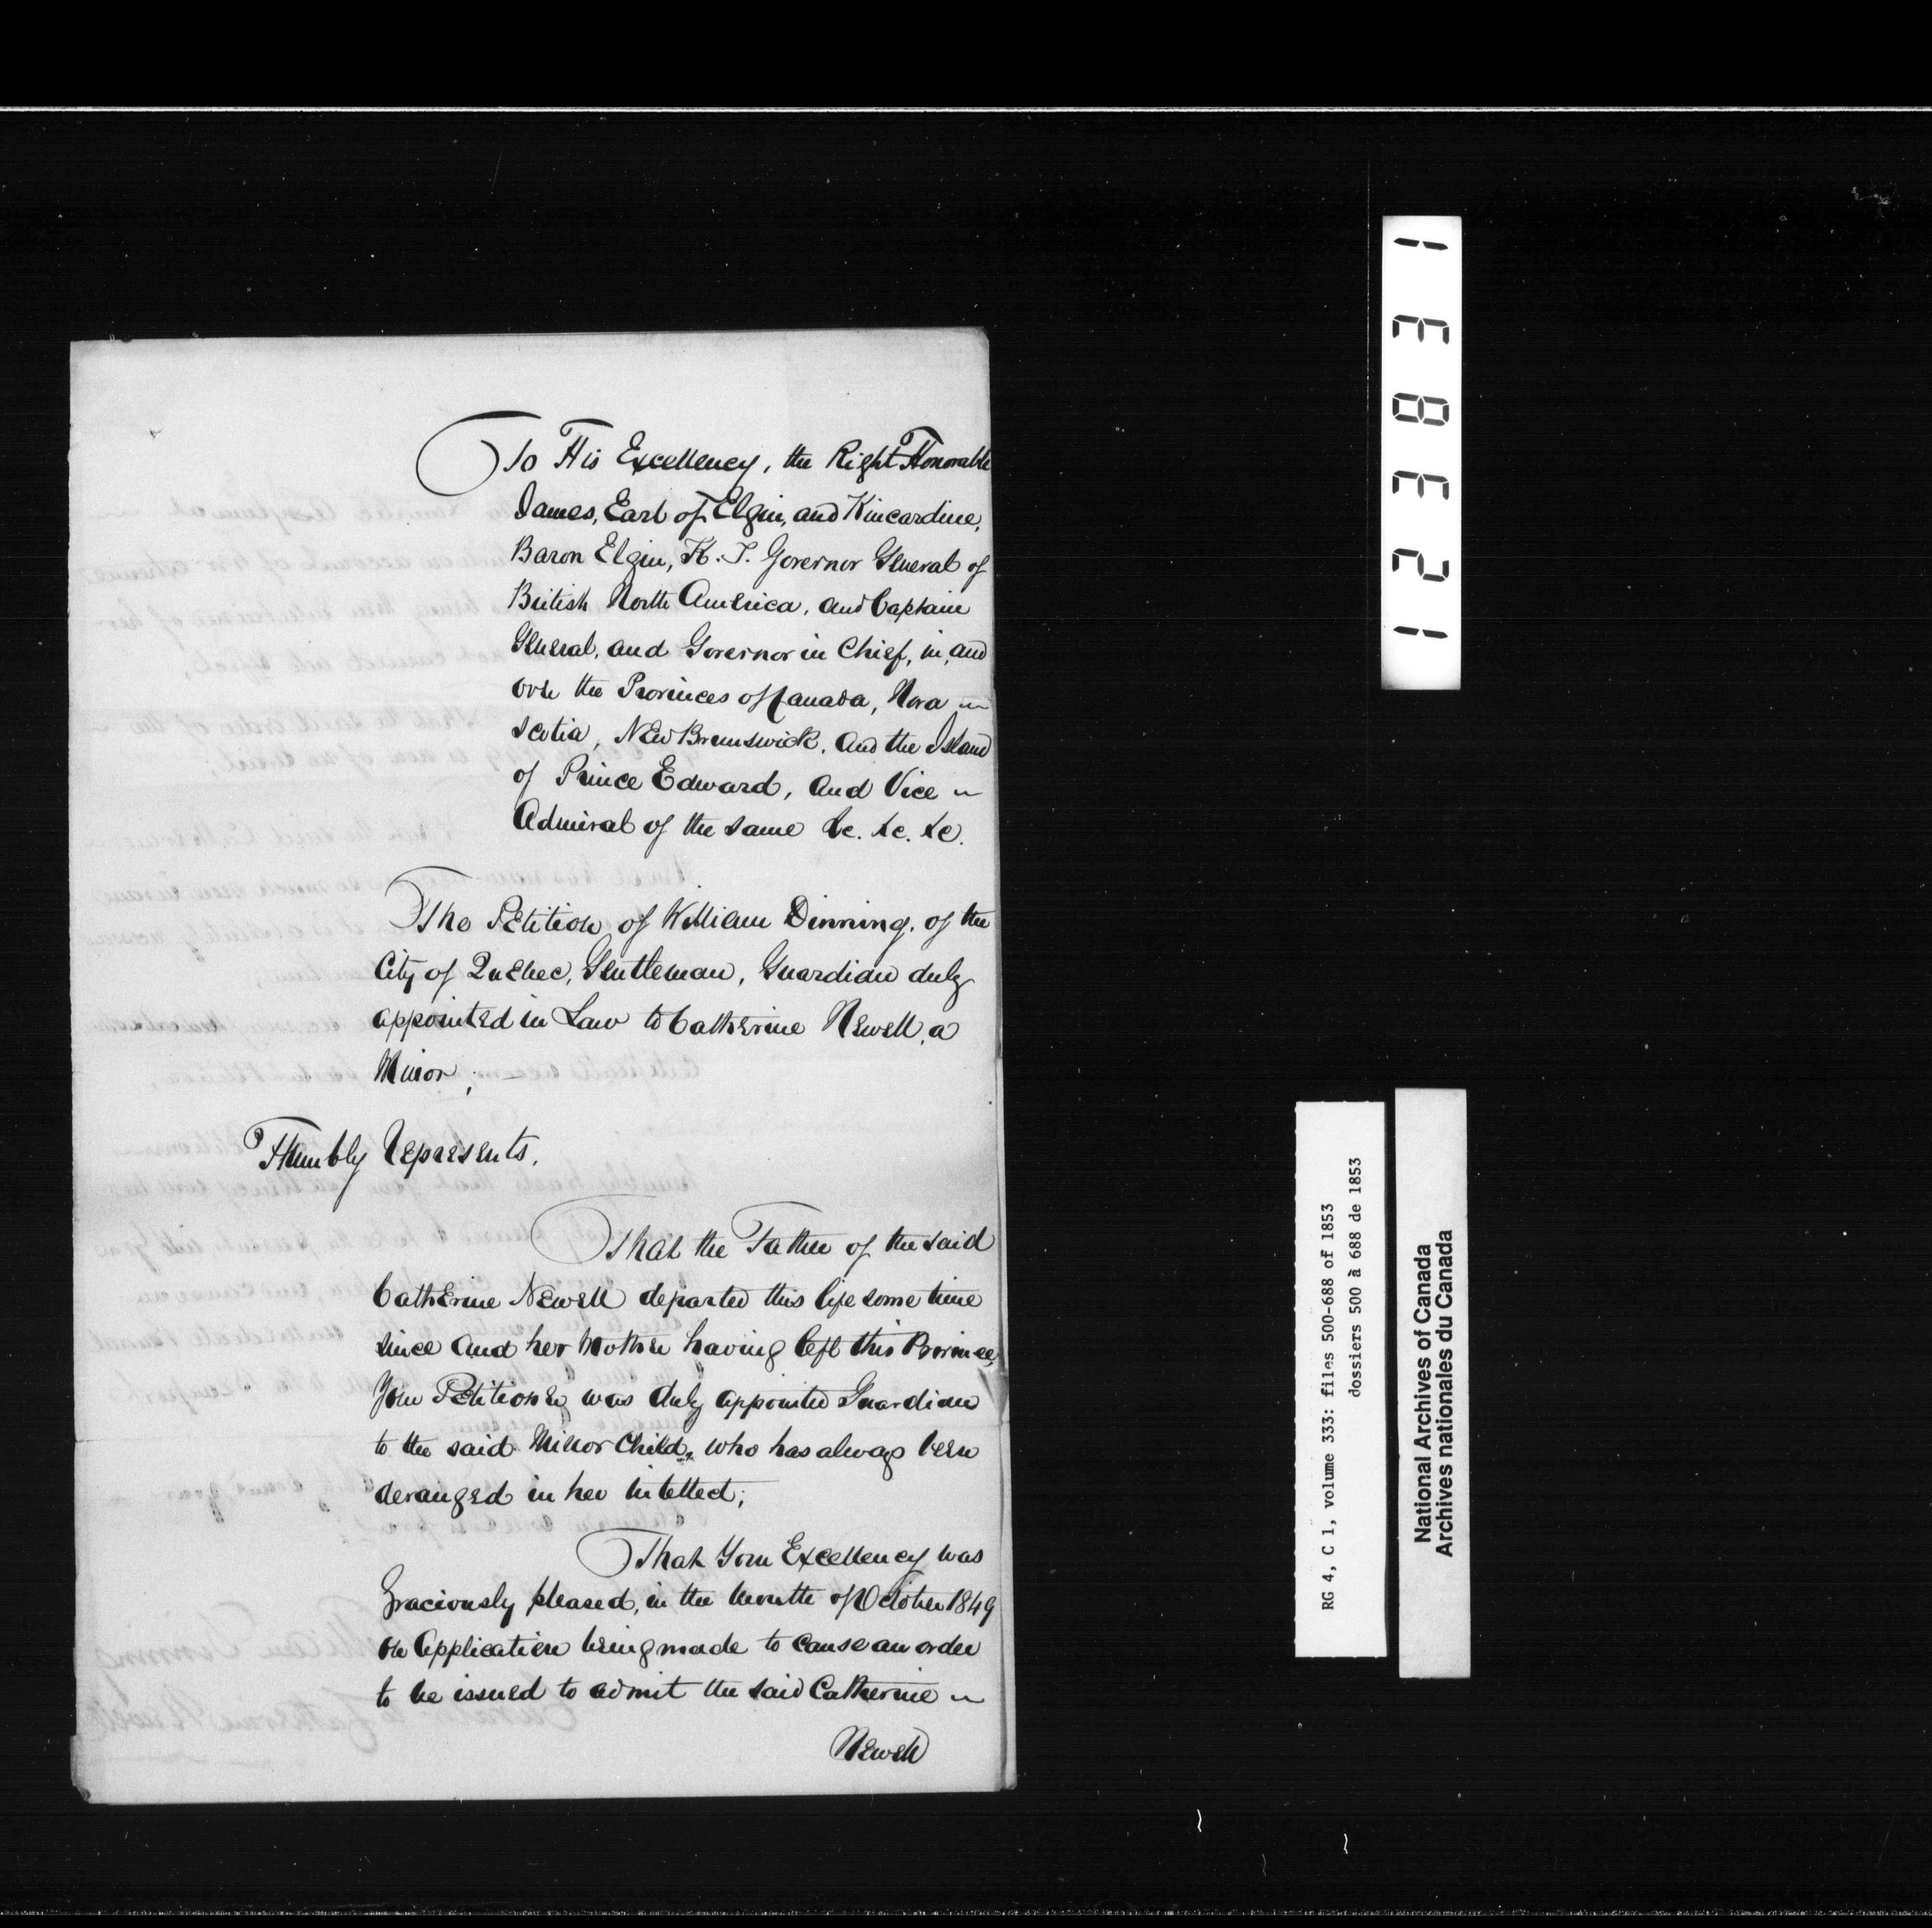 To His Excellency, the Right Honorable
James, Earl of Elgin, and Kincardine,
Baron Elgin, K. T. Governor General of
British North America, and Captain
General, and Governor in Chief, in, and
over the Provinces of Canada, Nova
Scotia, New Brunswick, and the Island
of Prince Edward, and Vice
Admiral of the same &c. &c. &c.
The Petition of William Dinning, of the
City of Quebec, Gentleman, Guardian duly
appointed in Law to Catherine Newell, a
Minor;
Humbly Represents,
That the Father of the said
Catherine Newell departed this life some time
since and her Mother having left this Province,
Your Petitioner was duly appointed Guardian
to the said Minor Child, who has always been
deranged in her intellect;
That Your Excellency was
Graciously pleased, in the month of October 1849
on Application being made to cause an order
to be issued to admit the said Catherine
Newell
121831
RG 4, C 1, volume 333: files 500-688 of 1853
dossiers 500 à 688 de 1853
National Archives of Canada
Archives nationales du Canada